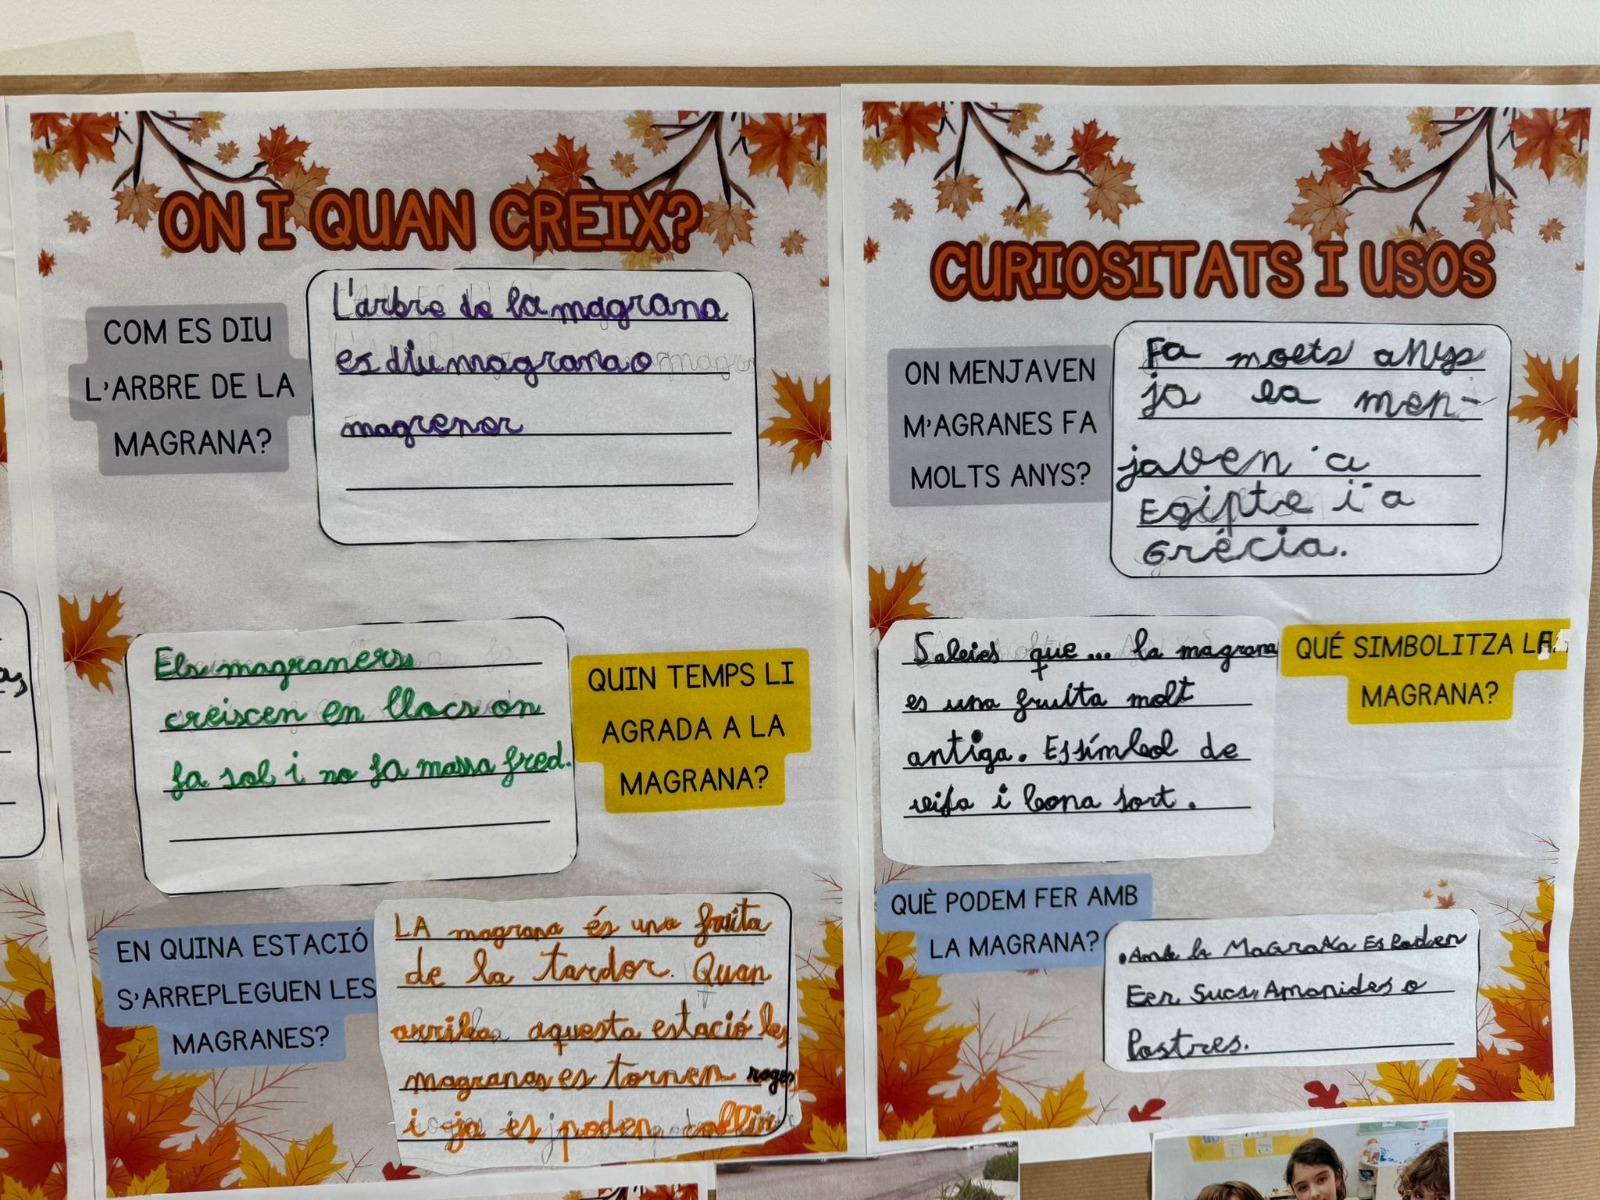 ON I QUAN CREIX?
COM ES DIU
L'ARBRE DE LA
MAGRANA?
L'arbre de la magrana
es diu magrana o
magrener
Els magraners
creiscen en llocs on
fa sol i no fa massa fred.
QUIN TEMPS LI
AGRADA A LA
MAGRANA?
EN QUINA ESTACIÓ
S'ARREPLEGUEN LES
MAGRANES?
LA magrana és una fruita
de la tardor. Quan
arriba aquesta estació les
magranes es tornen roges
i ja es poden collir
CURIOSITATS I USOS
ON MENJAVEN
M'AGRANES FA
MOLTS ANYS?
Fa molts anys
ja la men-
javen a
Egipte i a
Grècia.
Sabies que... la magrana
es una fruita molt
antiga. Es símbol de
vida i bona sort.
QUÉ SIMBOLITZA LA
MAGRANA?
QUÈ PODEM FER AMB
LA MAGRANA?
.Amb la MaGraNa Es Poden
Fer Sucs, Amanides o
Postres.